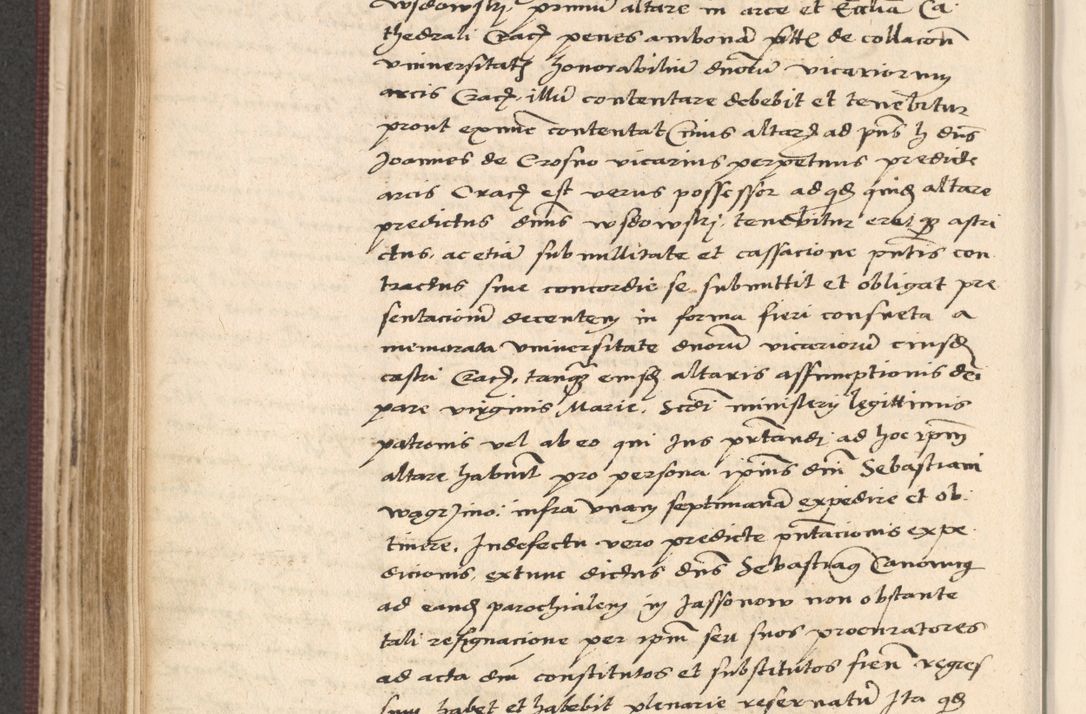 wsdowskij primũ altare in arce et Eccliã Ca
thedrali Crac. penes ambonã de collacon
vniuersitatȩ honorabiliũ dnorũ vicariorum
arcis Crac. illũ contentare debebit et tenebitur
prout ex nunc contentat Cuius altaris ad pns h dns
Joannes de Crosno vicarius perpetuus predicte
arcis Crac est verus possessor ad qd quid altare
predictus dnus wsdowskij tenebitur erit astri
ctus, ac etiã sub nullitate et cassacione pntis con
tractus siue concordie se submittit et obligat pre
sentacionẽ decentem in forma fieri consueta a
memorata vniuersitate dnorũ vicariorũ eiusd
castri Crac. tanq eiusd altaris assumptionis dei
pare virginis Marie, ministerij legittimis
patronis vel ab eo qui Ius pntandi ad hoc ipm
altare habuit pro persona ipius dni Sebastiani
wągrzino: infra vnam septimanã expedire et ob
tinere. In defectu vero predicte pntacionis expe
dicionis extunc dictus dns Sebastiaus Canonicus
ad eand parochialem in Jassonow non obstante
tali resignacione per ipm seu suos procuratores
ad acta dni constitutos et substitutos fien regres
sum habet et habebit plenarie reseruatũ Ita qd